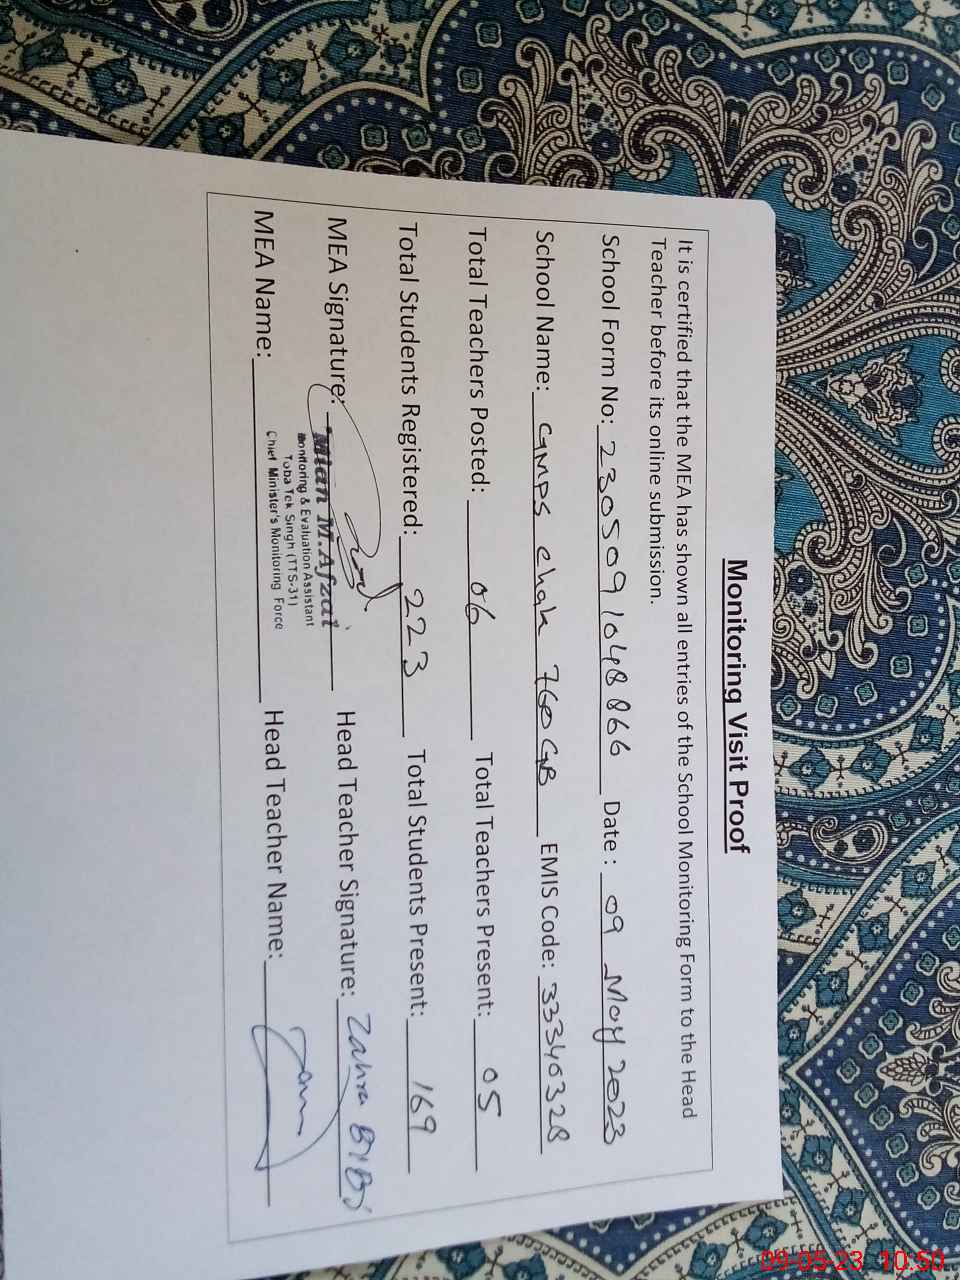 Monitoring Visit Proof
It is certified that the MEA has shown all entries of the School Monitoring Form to the Head
Teacher before its online submission.
School Form No: 230509 1048866 Date : 09 May 2023
School Name: GMPS chak 760 GB EMIS Code: 33340328
Total Teachers Posted: 06 Total Teachers Present: 05
Total Students Registered: 223 Total Students Present: 169
MEA Signature: Mian M.Afzal Head Teacher Signature: Zahra BIBI
Monitoring & Evaluation Assistant
Toba Tek Singh (TTS-31)
Chief Minister's Monitoring Force
MEA Name: Head Teacher Name:
09-05-23 10:50